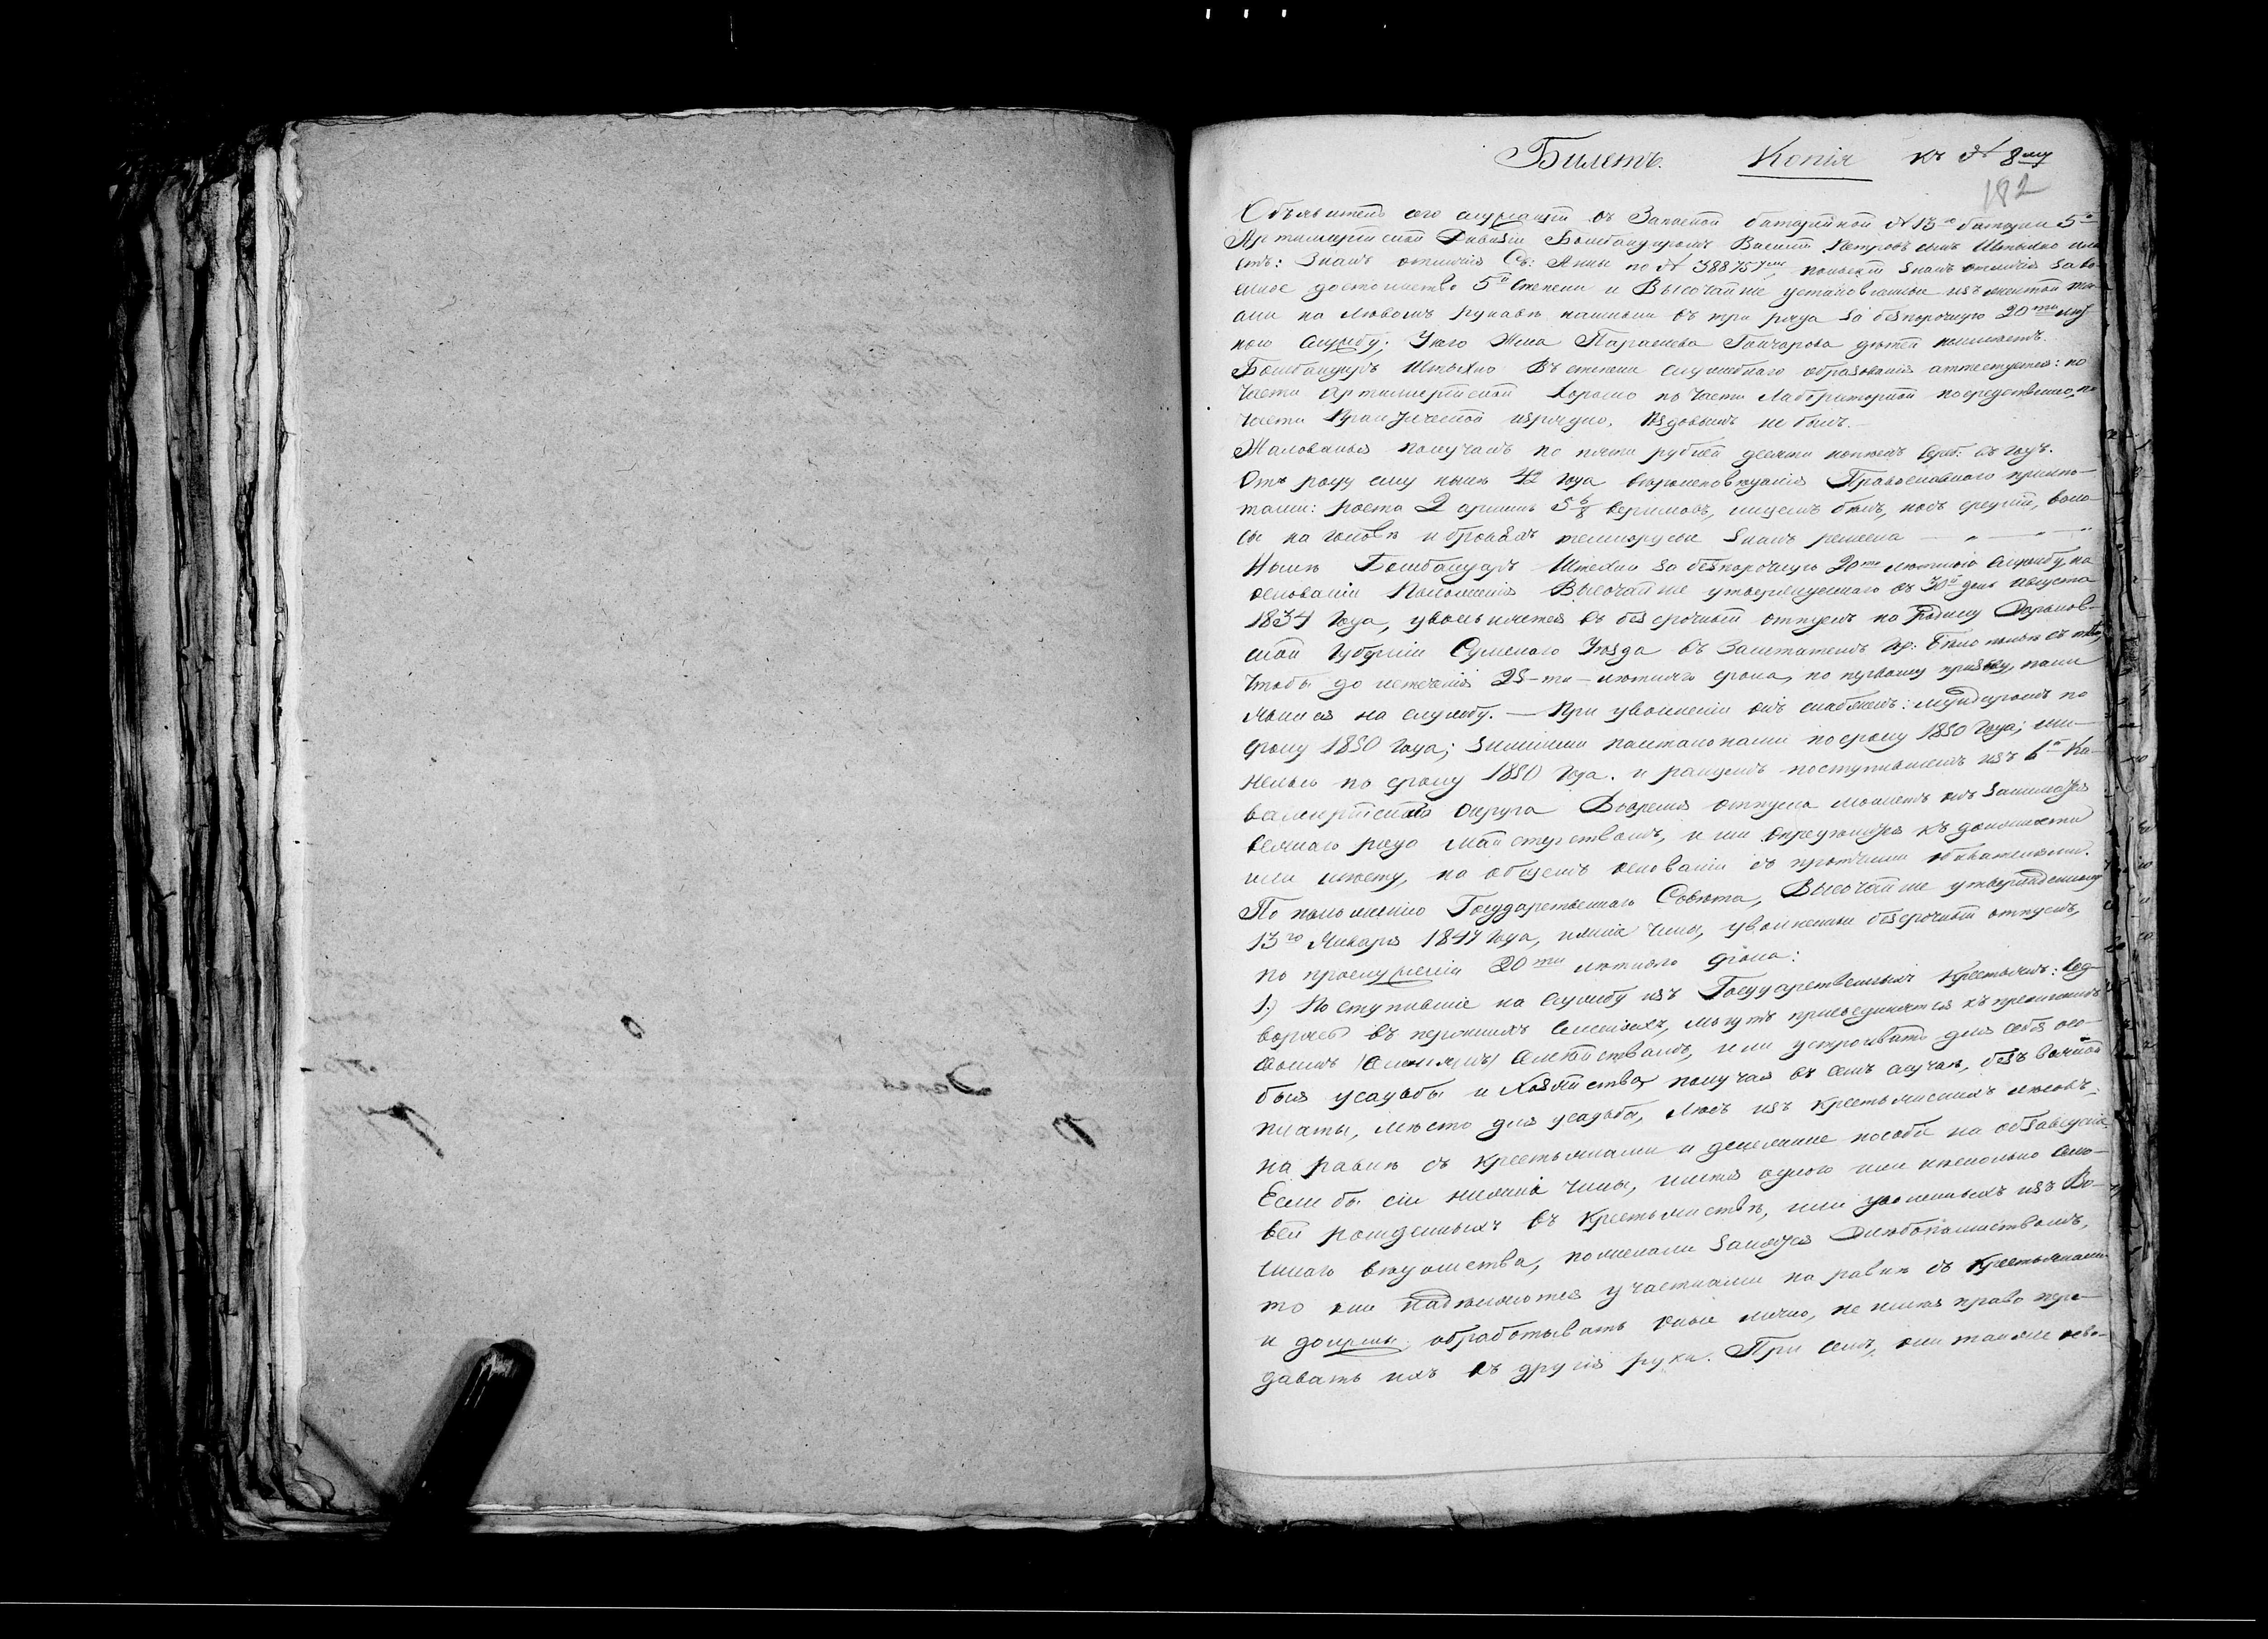 Билетъ. Копія къ № 8му
182
Объявитель сего служащій въ Запасной батарейной № 13го батареи 5й
Артиллерійской Дивизіи Бомбандиромъ Василій Петровъ сынъ Штыхно име
етъ: Знакъ отличія Св: Анны по № 388757мъ, польскій знакъ отличія за во-
енное достоинство 5й степени и Высочайше установленныя изъ желтой тесь
мы на лѣвомъ рукавѣ нашивки въ три ряда за безпорочную 20ти лѣт
нюю службу; У него Жена Параскева Гончарова дѣтей неимѣетъ.
Бомбандиръ Штыхно Въ степени служебнаго образованія аттестуется: по
части Артиллерійской Хорошо по части Лабораторной посредственно, по
части изрядно, ѣздовымъ не былъ.
Жалованья получалъ по пяти рублей десяти копѣекъ сереб: въ годъ.
Отъ роду ему нынѣ 42 года вѣроисповѣданія Православнаго примѣ-
тами: роста 2 аршинъ 5 6/8 вершковъ, лицемъ бѣлъ, носъ средній, воло
сы на головѣ и бровяхъ темнорусы знаетъ ремесла — „ — „
Нынѣ Бомбандиръ Штыхно за безпорочную 20ти лѣтнюю службу, на
основаніи Положенія Высочайше утвержденнаго въ 30й день Августа
1834 Года, увольняется въ безсрочный отпускъ на родину Харьков-
ской Губерніи Сумскаго Уѣзда въ Заштатный Гр: Бѣлополье съ тѣмъ,
чтобы до истеченія 25-ти-лѣтняго срока, по первому призыву, паки
явился на службу. — При увольненіи онъ снабженъ: мундиромъ по
сроку 1850 года; зимними панталонами по сроку 1850 Года; ши-
нелью по сроку 1850 Года. и ранцемъ поступившемъ изъ 6го Ка-
валерійскаго Округа Вовремя отпуска можетъ онъ заниматся
всякаго рода мастерствомъ, или опредѣлится къ должности
или мѣсту, на общемъ основаніи съ протчими обывателями.
По положенію Государственнаго Совѣта, Высочайше утвержденному
13го Января 1847 Года, нижніе чины, уволенные безсрочный отпускъ,
по прослуженіи 20ти лѣтняго срока:
1.) Поступившіе на службу изъ Государственныхъ Крестьянъ: вод-
ворясь въ прежнихъ селеніяхъ, могутъ присоединятся къ прежнимъ
своимъ семействамъ, или устроивать для себя осо-
быя усадьбы и хозяйства получая въ семъ случаѣ, безъ всякой
платы, мѣсто для усадьбы, лѣсъ изъ крестьянскихъ лѣсовъ,
на равнѣ съ крестьянами и денежныя пособіе на обзаведеніе.
Если бы сіи нижніе чины, имѣя одного или нѣсколько сыно-
вей рожденныхъ въ крестьянствѣ, или уволенныхъ изъ Во-
еннаго вѣдомства, пожелали занятся Хлѣбопашествомъ,
то они надѣляются участками на равнѣ съ Крестьянами
и должны обработывать оные лично, не имѣя права пере-
давать ихъ въ другія руки. При семъ, они также осво-